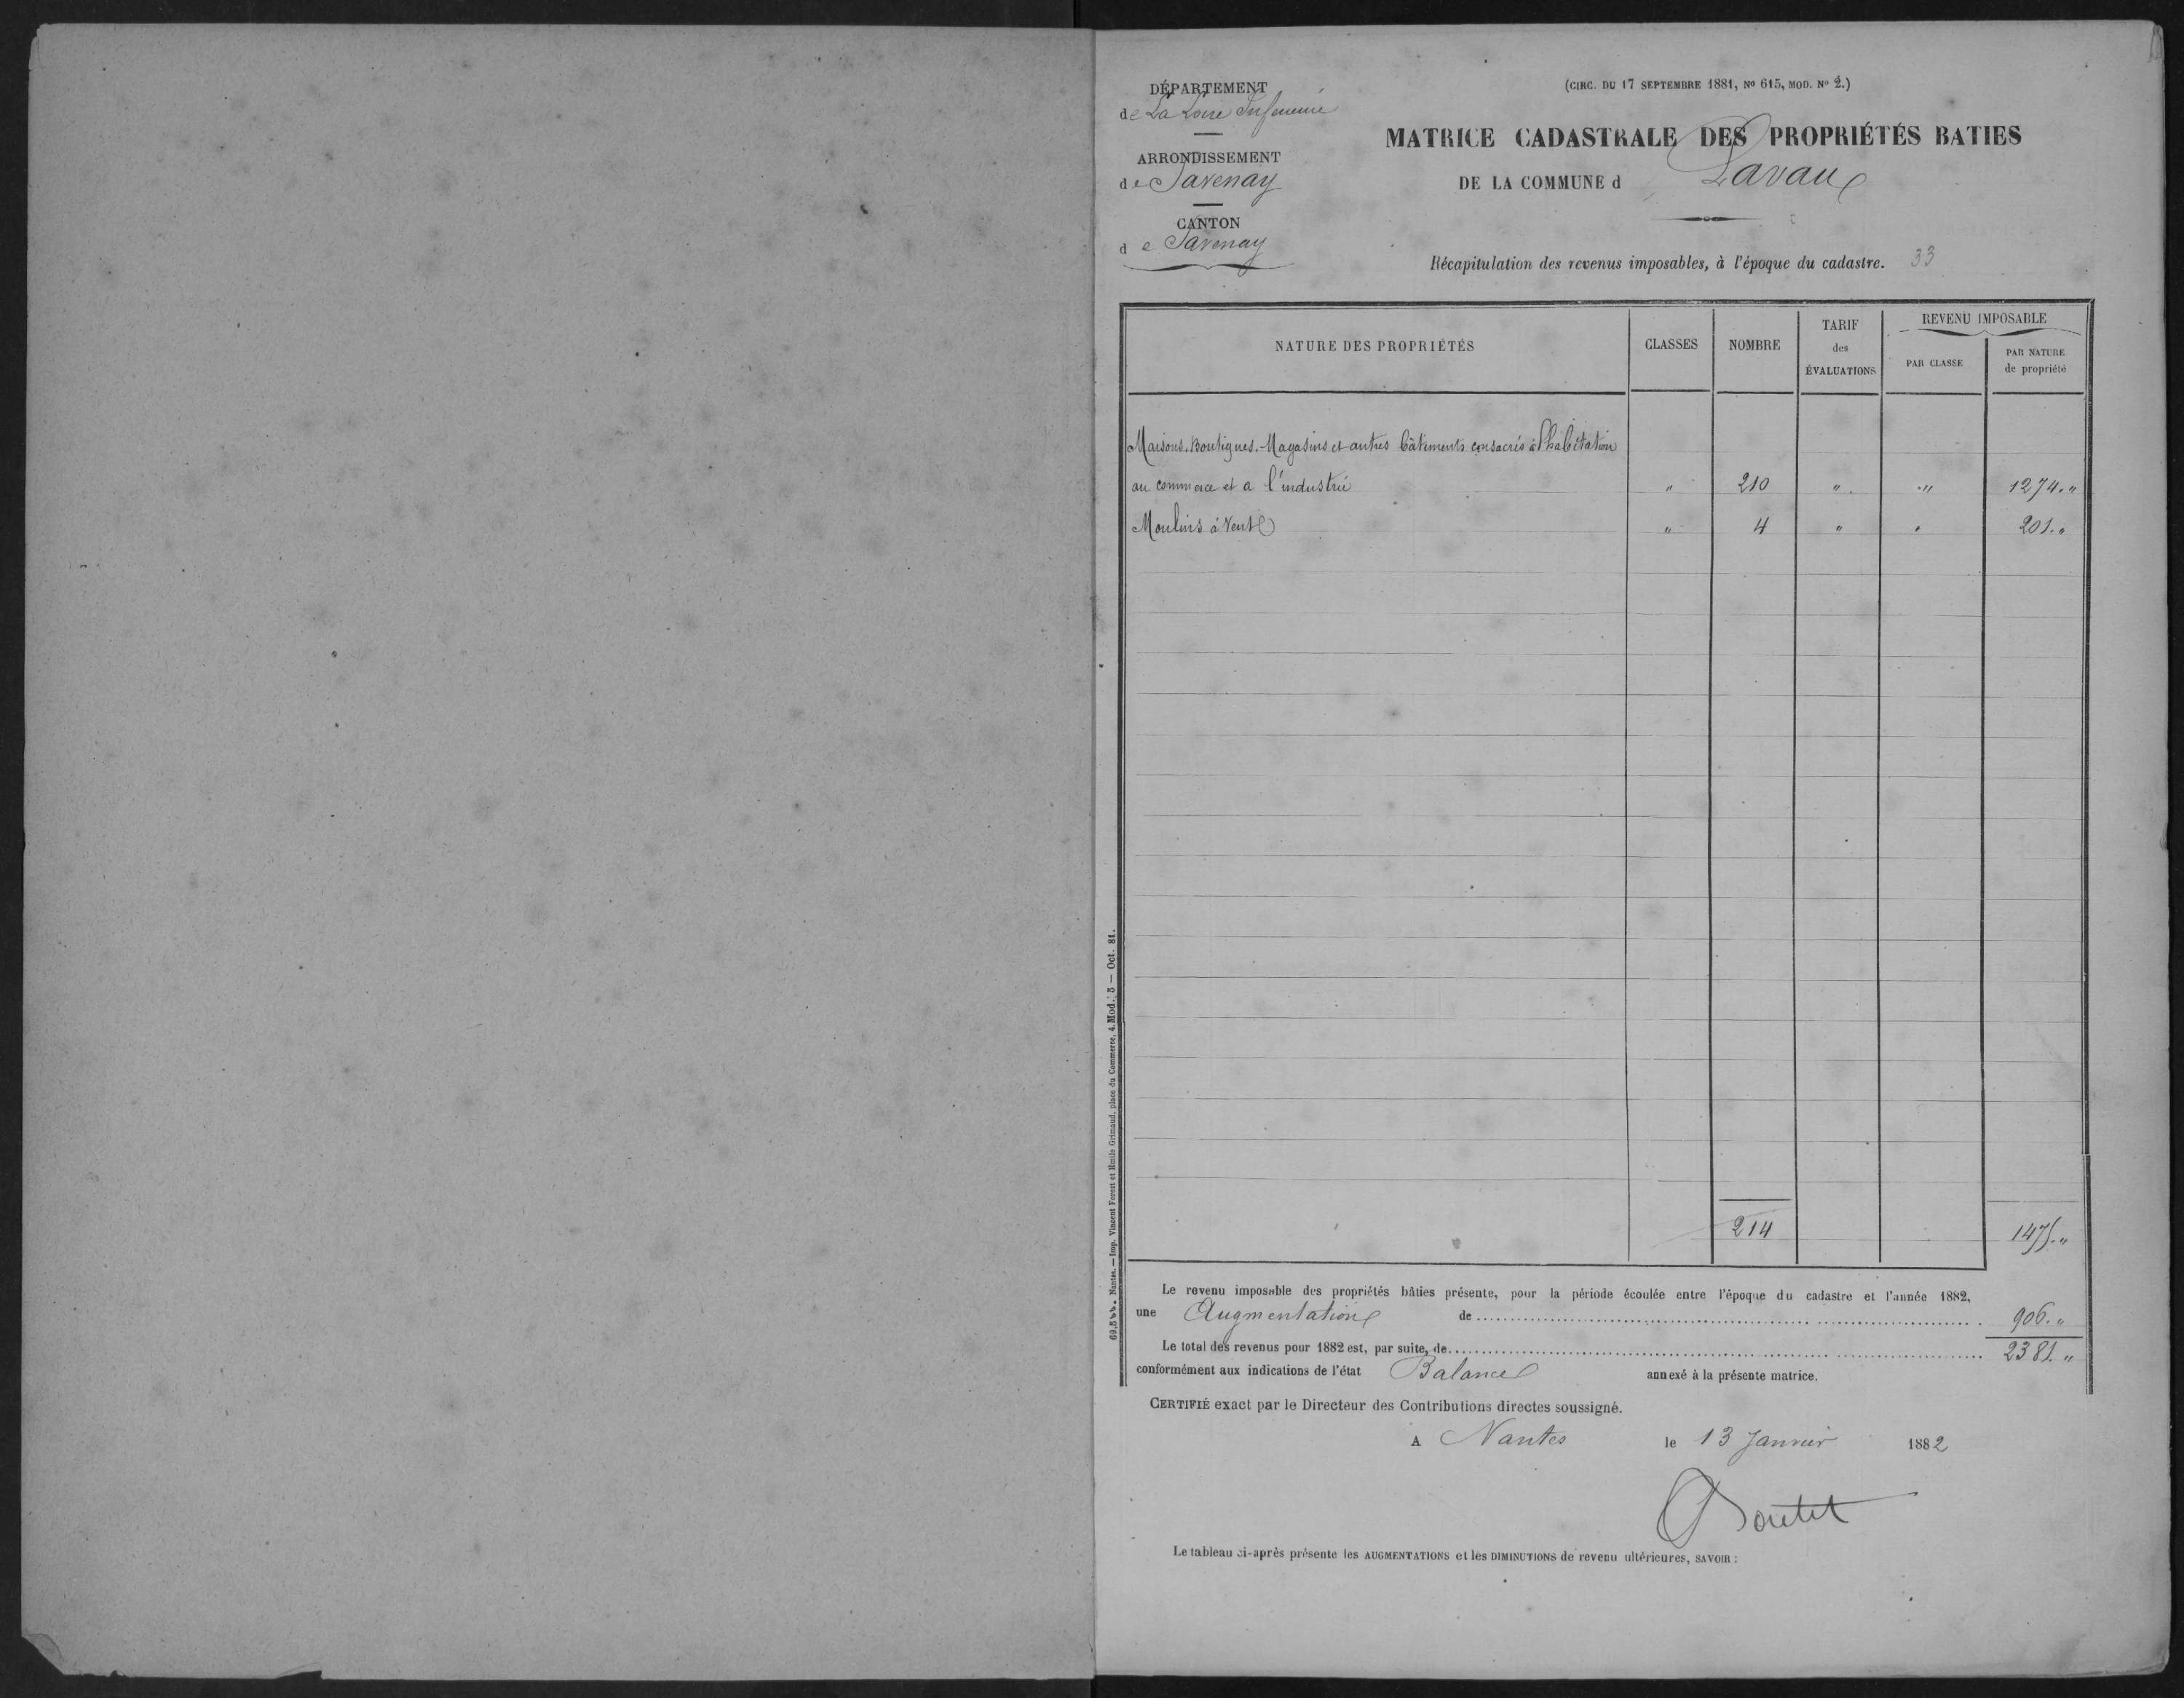 DÉPARTEMENT
de La Loire Inférieure
ARRONDISSEMENT
de Savenay
CANTON
de Savenay
(CIRC. DU 17 SEPTEMBRE 1881, No 615, MOD. No 2.)
MATRICE CADASTRALE DES PROPRIÉTÉS BATIES
DE LA COMMUNE d Lavau
Récapitulation des revenus imposables, à l'époque du cadastre. 33
NATURE DES PROPRIÉTÉS CLASSES NOMBRE TARIF des ÉVALUATIONS REVENU IMPOSABLE PAR CLASSE PAR NATURE de propriété
Maisons. Boutiques. Magasins et autres bâtiments consacrés à l'habitation
au commerce et a l'industrie " 210 " " 1274. "
Moulins à Vent " 4 " " 201. "
214 1475. "
Le revenu imposable des propriétés bâties présente, pour la période écoulée entre l'époque du cadastre et l'année 1882,
une Augmentation de 906. "
Le total des revenus pour 1882 est, par suite, de 2381. "
conformément aux indications de l'état Balance annexé à la présente matrice.
CERTIFIÉ exact par le Directeur des Contributions directes soussigné.
A Nantes le 13 Janvier 1882
Boutet
Le tableau ci-après présente les AUGMENTATIONS et les DIMINUTIONS de revenu ultérieures, SAVOIR :
Nantes. — Imp. Vincent Forest et Emile Grimaud, place du Commerce, 4. Mod. 5 — Oct. 81.